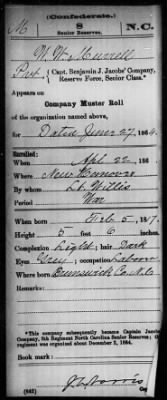 (Confederate.)
M 8 N.C.
Senior Reserves.
W. W. Murrell
Pvt., (Capt. Benjamin J. Jacobs' Company,
Reserve Force, Senior Class.*
Appears on
Company Muster Roll
of the organization named above,
for Dated June 27, 1864.
Enrolled:
When Apl. 22, 186
Where New Hanover
By whom Lt. Willis
Period War
When born Feb. 5, 1817.
Height, 5 feet 6 inches.
Complexion Light, hair Dark
Eyes Grey; occupation Laborer
Where born Brunswick Co. N.C.
Remarks:
*This company subsequently became Captain Jacobs'
Company, 8th Regiment North Carolina Senior Reserves; the
regiment was organized about December 2, 1864.
Book mark:
(642)
Copyist.